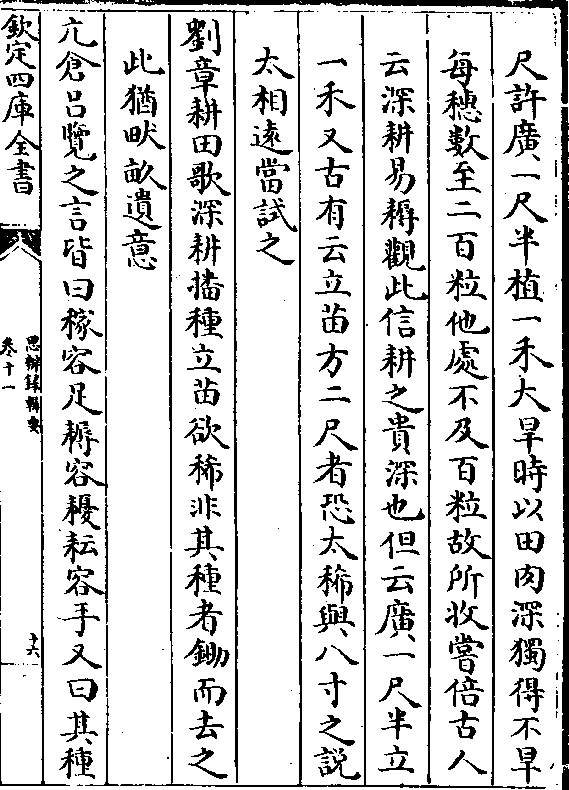 尺許廣一尺半植一禾大旱時以田肉深獨得不旱
每穗數至二百粒他處不及百粒故所收嘗倍古人
云深耕易耨觀此信耕之貴深也但云廣一尺半立
一禾又古有云立苗方二尺者恐太稀與八寸之説
太相遠當試之
劉章耕田歌深耕播種立苗欲稀非其種者鋤而去之
此猶畎畝遺意
亢倉吕覽之言皆曰稼容足耨容耰耘容手又曰其種
欽定四庫全書
思辨錄輯要
卷十一
十六